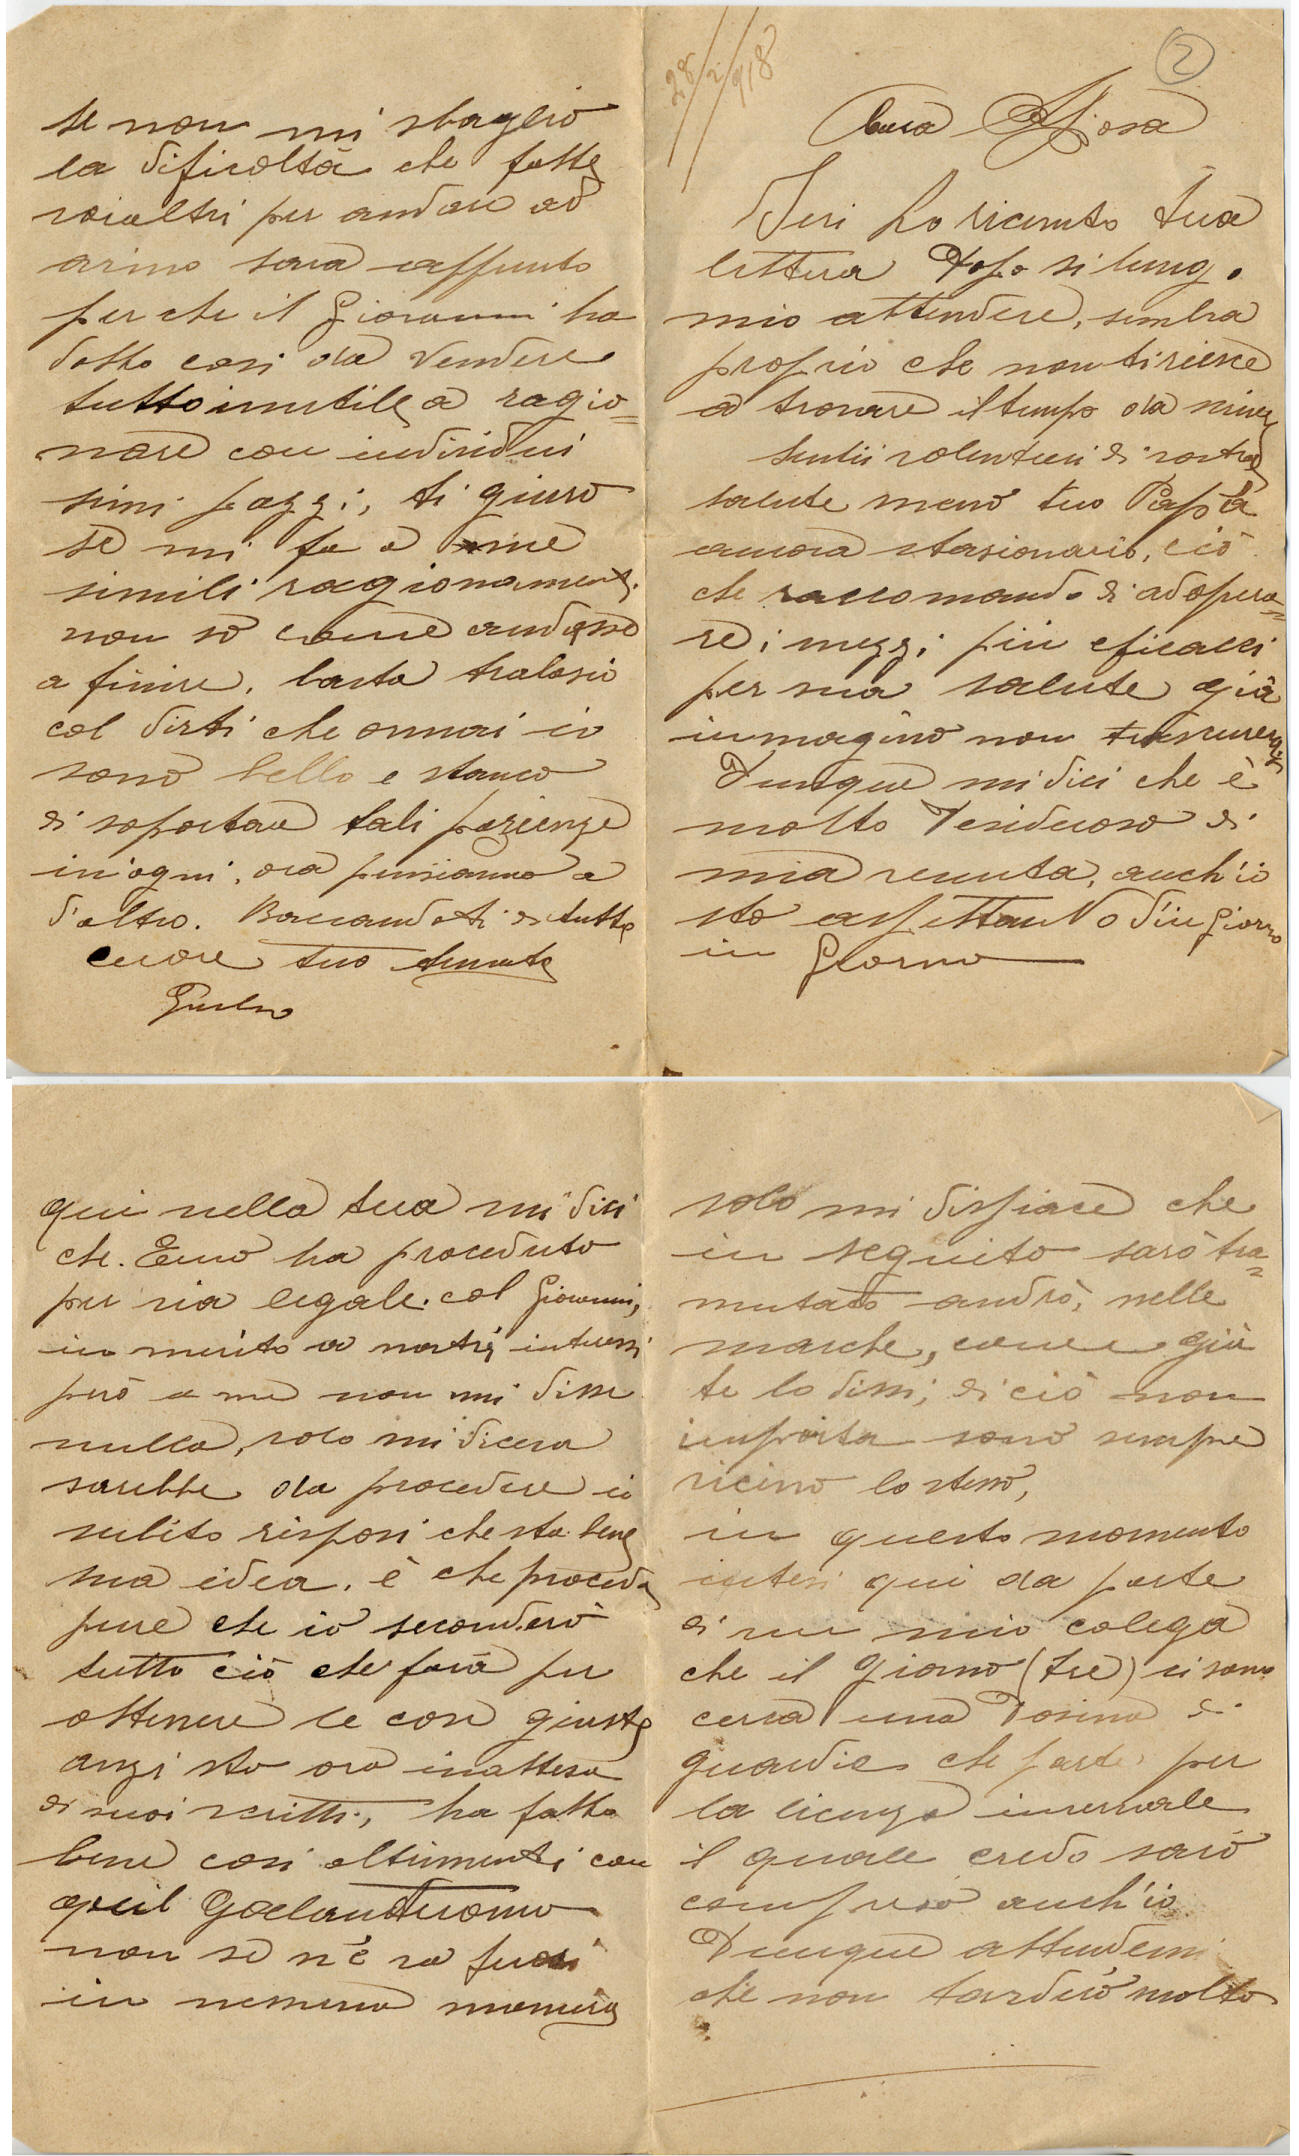 28/2/918
2
Cara Sposa
Ieri ho ricevuto tua
lettera dopo si lungo
mio attendere, sembra
proprio che non ti riesce
a trovare il tempo da
Sentii volentieri di vostra
salute meno tuo Papà
ancora stasionario, ciò
che raccomando di adopera=
re i mezzi più eficacci
per sua salute già
immagino non
Dunque mi dici che è
molto desideroso di
mia venuta, anch'io
sto aspettando d'in giorno
in Giorno
qui nella tua mi dici
che. Emo ha proceduto
per via legale. col Giovanni,
in merito a nostri interessi
però a me non mi disse
nulla, solo mi diceva
sarebbe da procedere io
subito risposi che sta bene
sua idea. è che proceda
pure che io seconderò
tutto ciò che farà per
ottenere le cose giuste
anzi sto ora inattesa
di suoi scritti, ha fatto
bene cosi altrimenti con
quel Galantuomo
non se n'è va fuori
in nessuna maniera
solo mi dispiace che
in seguito sarò tra=
mutato andrò, nelle
marche, come già
te lo dissi, di ciò non
importa sono sempre
vicino lo stesso,
in questo momento
intesi qui da parte
di un mio colega
che il giorno (tre) ci sono
cerca una dosina di
guardie che parte per
la licenza invernale
il quale credo sarò
compreso anch'io
Dunque attendemi
che non tarderò molto
se non mi sbaglio
la dificoltà che fatte
voialtri per andare ad
arino sara appunto
perche il Giovanni ha
detto cosi da vendere
tutto inutile a ragio=
nare con individui
simi pazzi, ti giuro
se mi fa a me
simili ragionamenti
non sò come andasse
a finire, basta tralasio
col dirti che ormai io
sono bello e stanco
di soportare tali pazienze
in ogni. ora pensiamo a
d'altro. Bacciandoti di tutto
cuore tuo